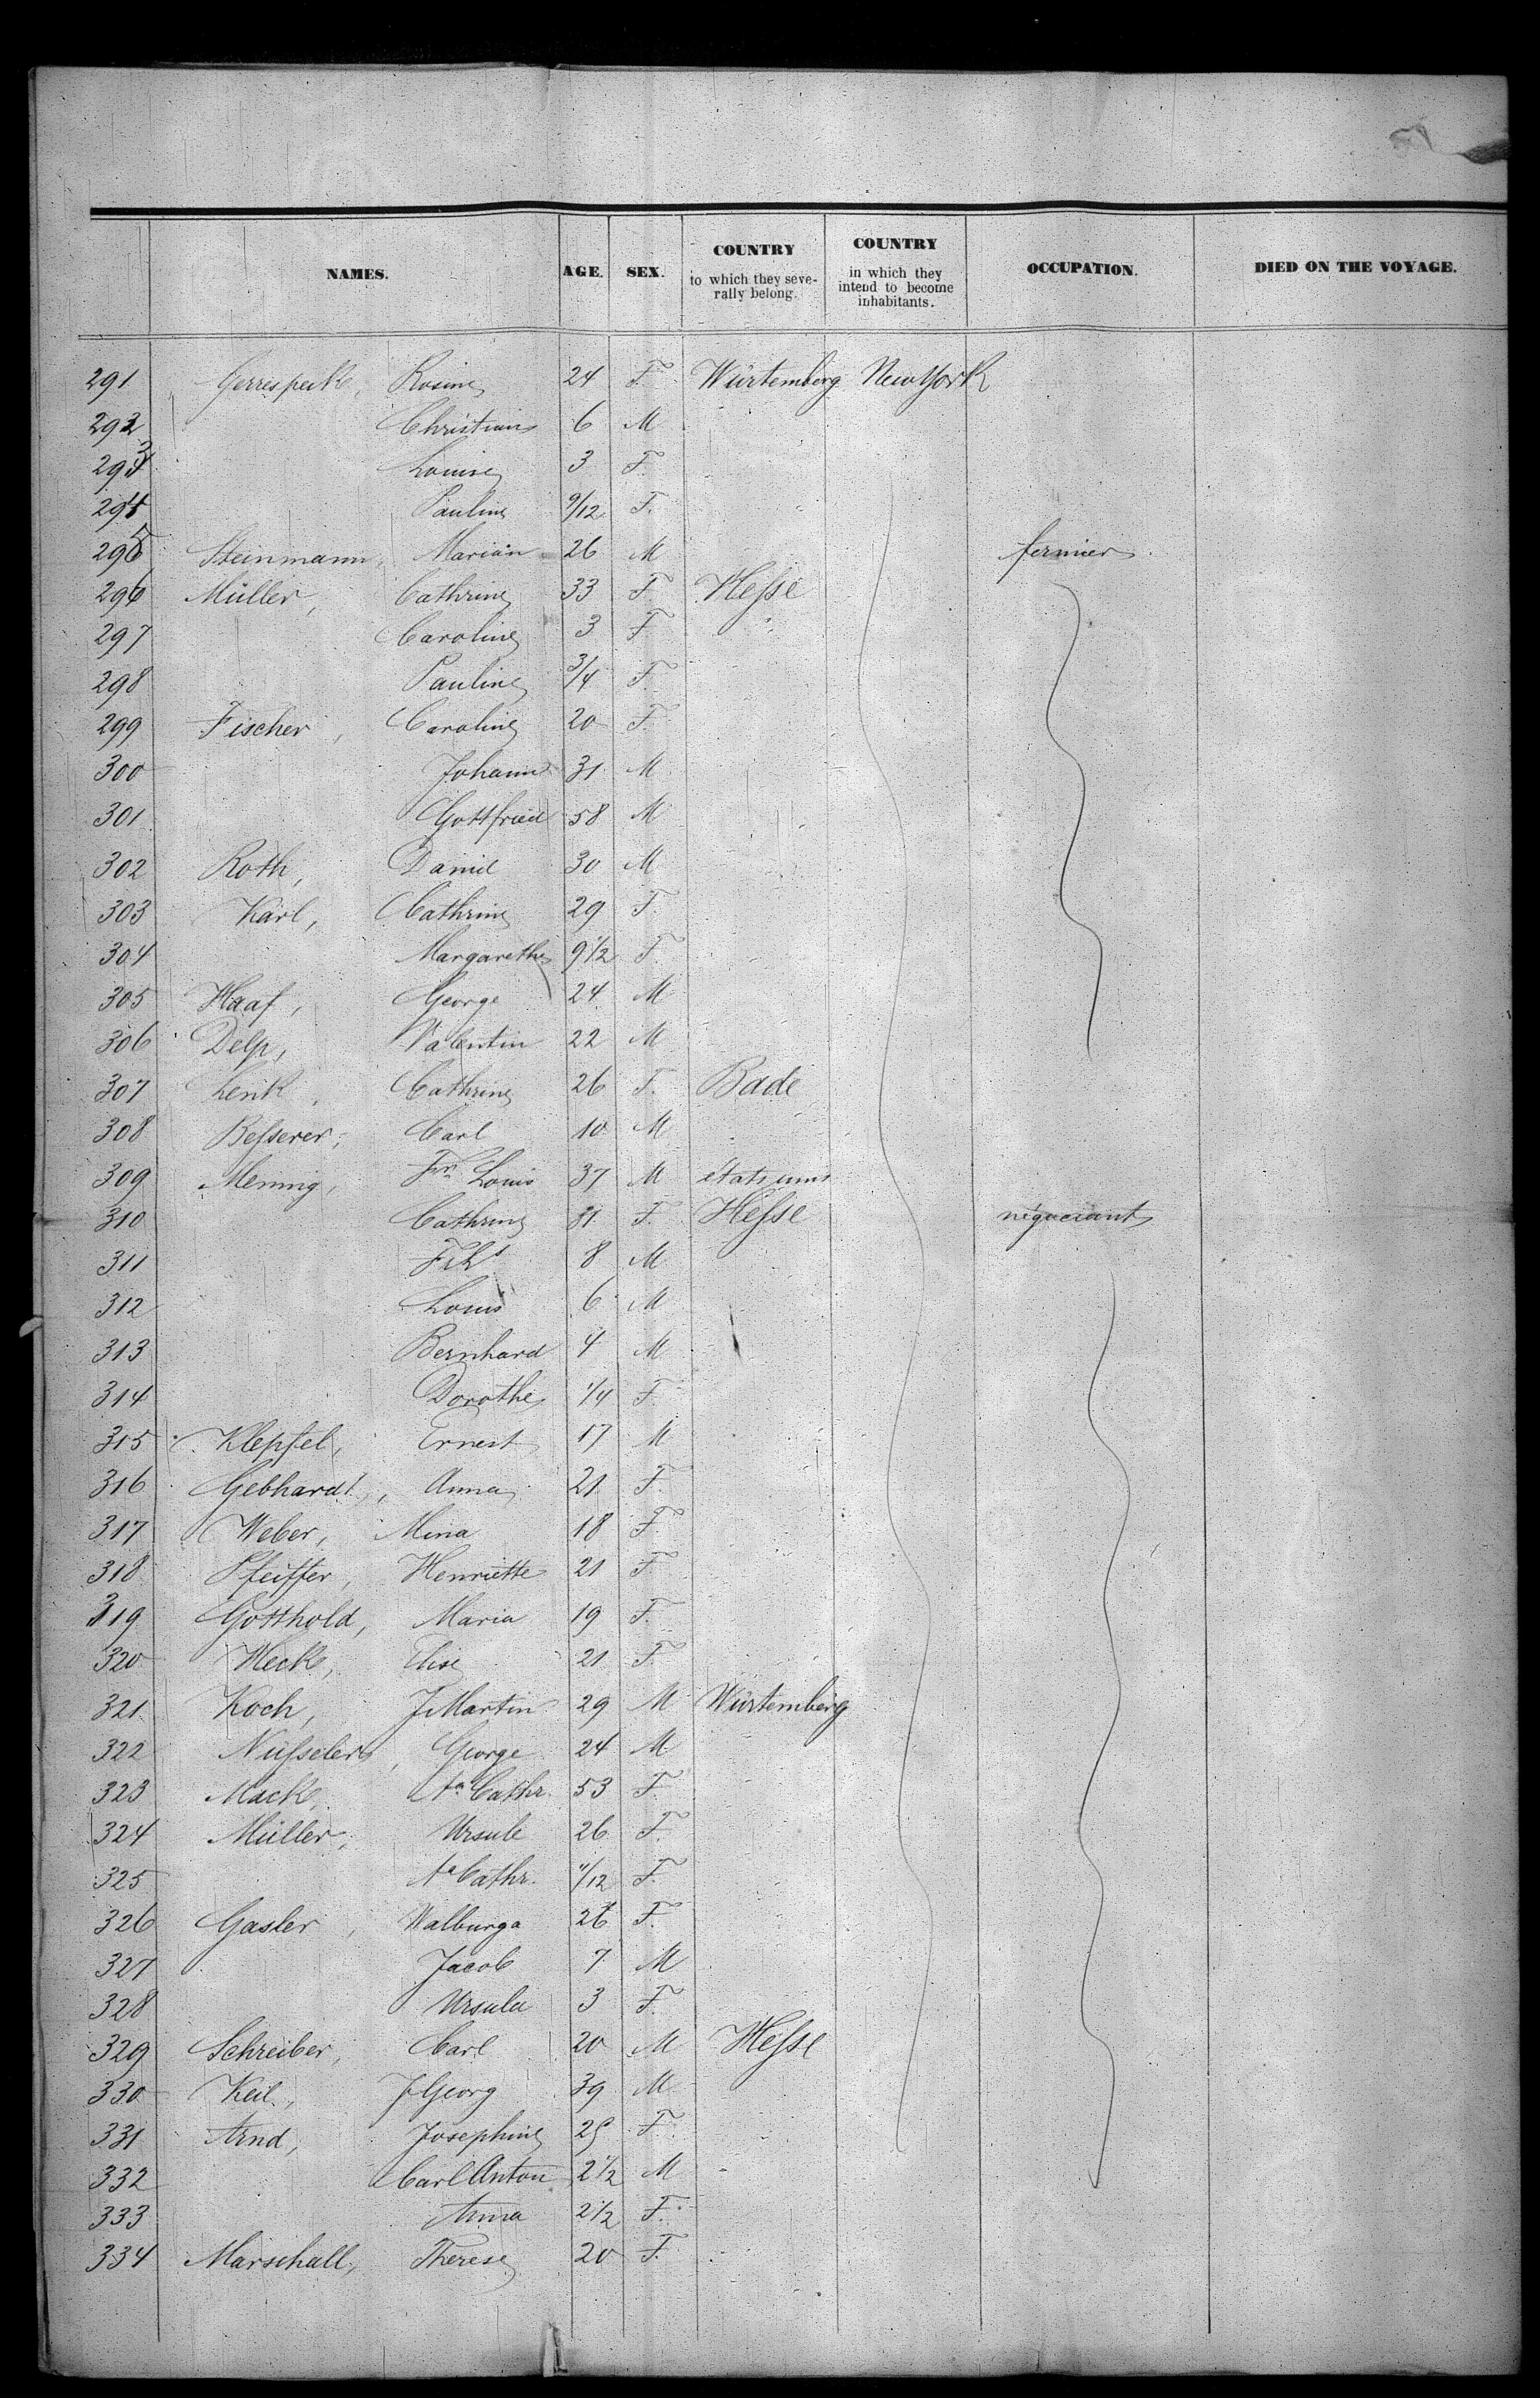 NAMES. AGE. SEX. COUNTRY to which they severally belong. COUNTRY in which they intend to become inhabitants. OCCUPATION. DIED ON THE VOYAGE.
291 Gerrespeck, Rosine 24 F. Würtemberg New York
292 Christian 6 M
293 Louise 3 F.
294 Pauline 9/12 F.
295 Steinmann, Marian 26 M fermier
296 Müller, Cathrine 33 F. Hesse
297 Caroline 3 F
298 Pauline 3/4 F.
299 Fischer, Caroline 20 F.
300 Johann 31 M
301 Gottfried 58 M
302 Roth, Daniel 30 M
303 Karl, Cathrine 29 F.
304 Margarethe 9 1/2 F.
305 Haaf, George 24 M
306 Delp, Valentin 22 M
307 Lenk, Cathrine 26 F. Bade
308 Besserer, Carl 10 M
309 Mening, Fr. Louis 37 M états unis
310 Cathrine 31 F. Hesse négociant
311 8 M
312 Louis 6 M
313 Bernhard 4 M
314 Dorothe 1/4 F.
315 Klepfel, Ernest 17 M
316 Gebhardt, Anna 21 F.
317 Weber, Mina 18 F.
318 Pfeiffer, Henriette 21 F
319 Gotthold, Maria 19 F.
320 Heck, Elise 21 F.
321 Koch, J Martin 29 M Würtemberg
322 Nusseler, George 24 M
323 Mack, Aa Cathr. 53 F.
324 Müller, Ursule 26 F.
325 Aa Cathr. 11/12 F.
326 Gasler, Walburga F.
327 Jacob 7 M
328 Ursula 3 F.
329 Schreiber, Carl 20 M Hesse
330 Keil, J Georg 39 M
331 Arnd, Josephine 25 F.
332 Carl Anton 2 1/2 M
333 Anna 2 1/2 F.
334 Marschall, Therese 20 F.